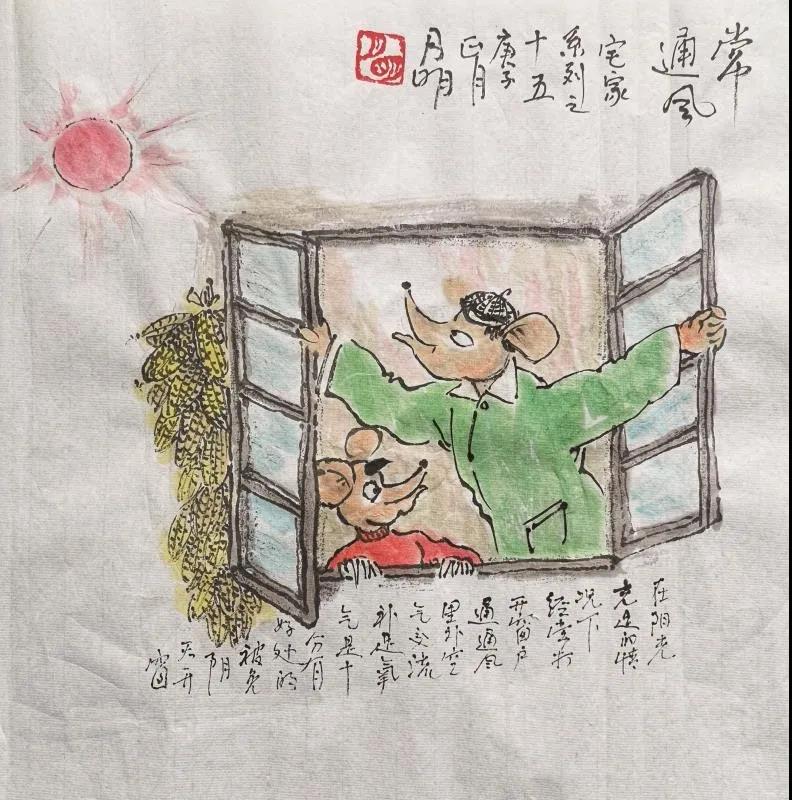 常
通风
宅家
系列之
十五
庚子
正月
月明
在阳光
充足的情
况下
经常打
开窗户
通通风
里外空
气交流
补足氧
气是十
分有
好处的
被免
阴
天开
窗